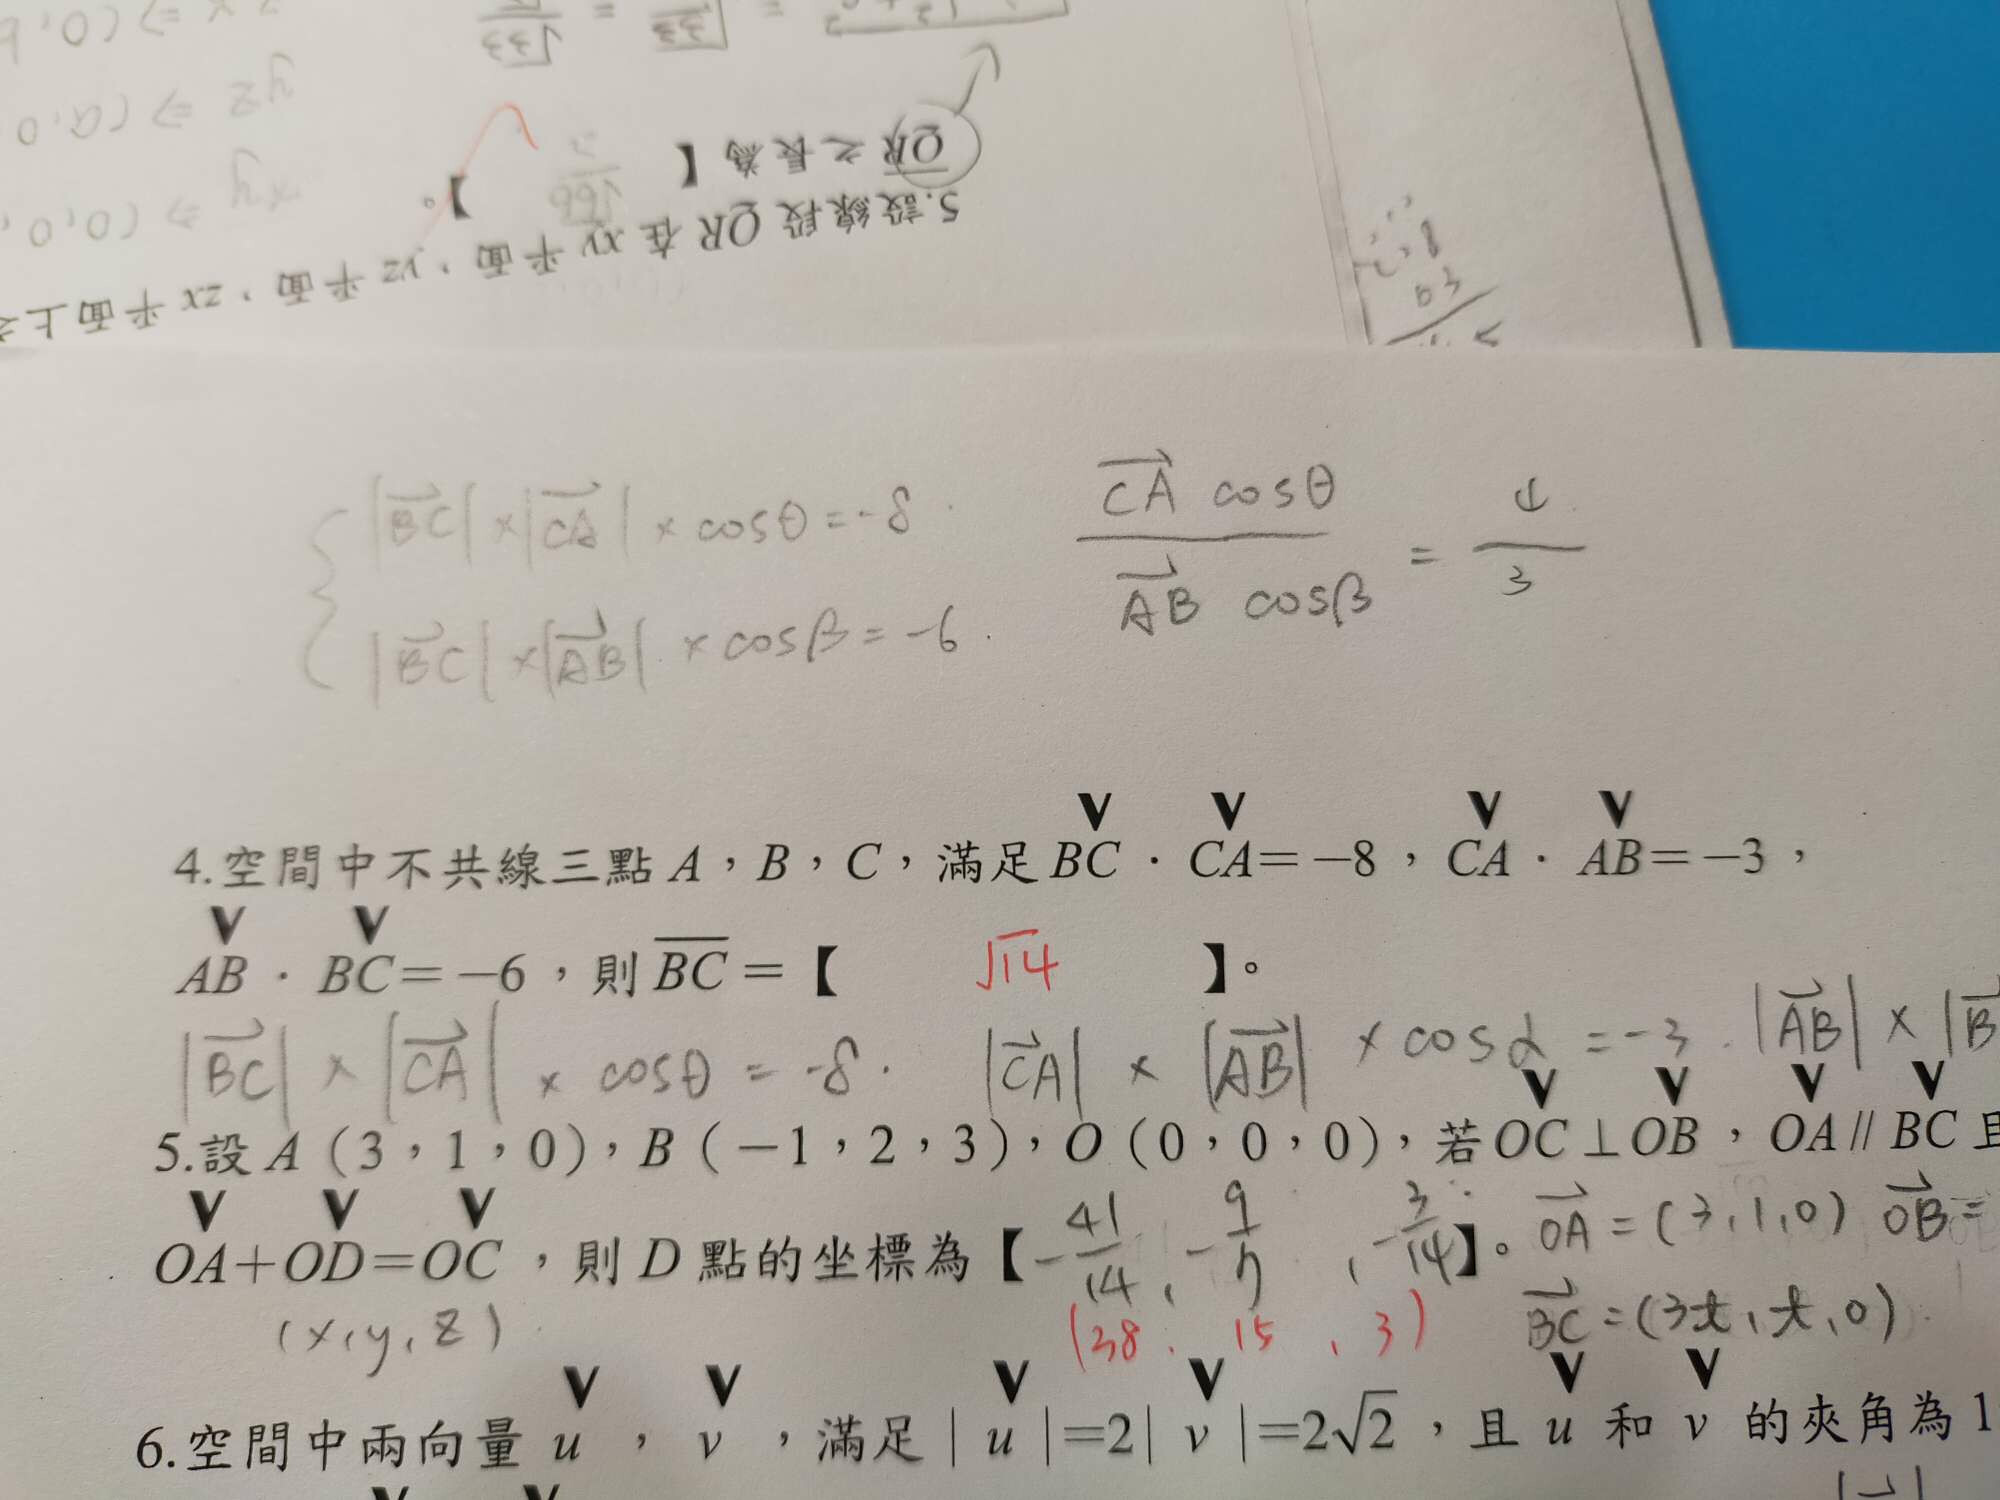 5.設線段 QR 在 xy 平面,yz 平面,zx 平面上之
QR 之長為【 √66/2 】。
xy ⇒ (0,0,
yz ⇒ (a,0
x ⇒ (0,b
|BC|×|CA|×cosθ=-8
|BC|×|AB|×cosβ=-6
CA cosθ / AB cosβ = 4/3
4.空間中不共線三點 A,B,C,滿足 BC · CA=-8,CA · AB=-3,
AB · BC=-6,則 BC=【 √14 】。
|BC|×|CA|×cosθ=-8. |CA|×|AB|×cosα=-3. |AB|×|B
5.設 A(3,1,0),B(-1,2,3),O(0,0,0),若 OC⊥OB,OA∥BC 且
OA+OD=OC,則 D 點的坐標為【 -41/14, -9/7, -3/14 】。 OA=(3,1,0) OB=
(x,y,z) (38, 15, 3) BC=(3t,t,0)
6.空間中兩向量 u,v,滿足 | u |=2| v |=2√2,且 u 和 v 的夾角為 1